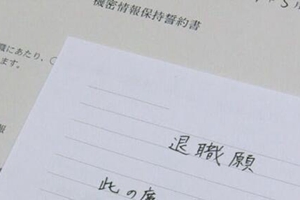 機密情報保持誓約書
職にあたり、
ます。
退職願
此の度